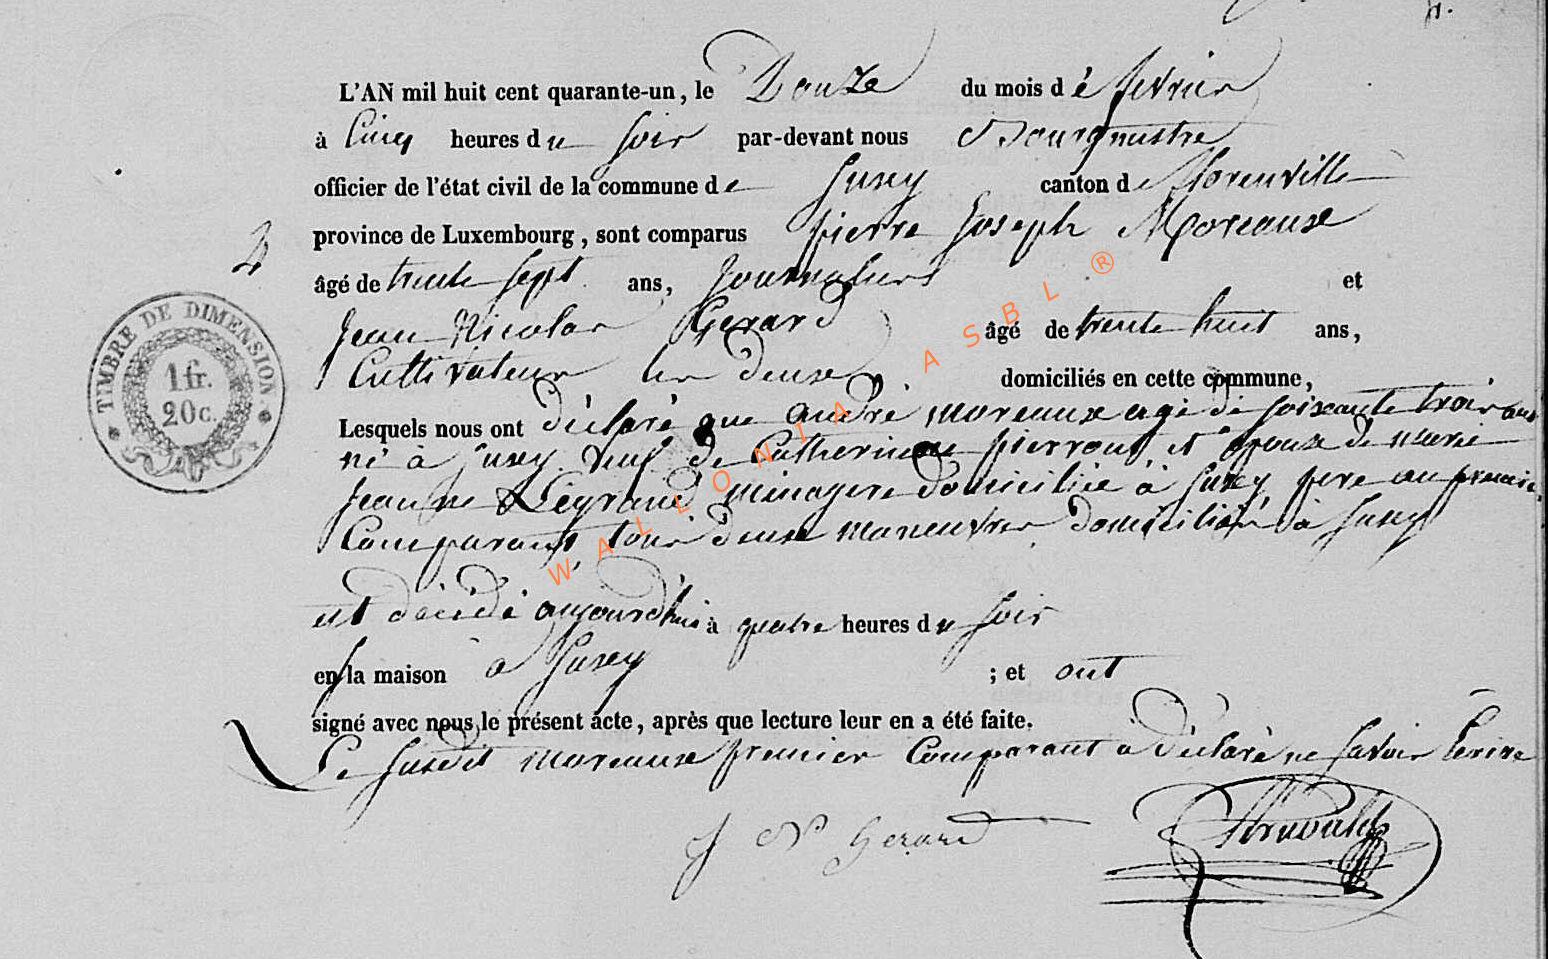 L'AN mil huit cent quarante-un, le Douze du mois de fevrier
à Cinq heures du soir par-devant nous Bourgmestre
officier de l'état civil de la commune de Jusey canton de florenville
province de Luxembourg, sont comparus pierre Joseph Moreaux
âgé de trente sept ans, Journaliers et
Jean Nicolas Gerard âgé de trente huit ans,
Cultivateur les deux domiciliés en cette commune,
Lesquels nous ont déclaré que andré moreaux agé de soixante trois ans
né à Jusey veuf de Catherine pierrout et époux de marie
Jeanne Legrand ménagere domiciliée à Jusey, pere au premier
Comparant tous deux maneuvres domiciliés à Jusey
est décédé aujourd'huis à quatre heures du soir
en sa maison à Jusey ; et ont
signé avec nous le présent acte, après que lecture leur en a été faite.
Le susdit moreaux premier Comparant à déclaré ne savoir Ecrire
J N Gerard
TIMBRE DE DIMENSION
1 fr.
20 c.
WALLONIA ASBL ®